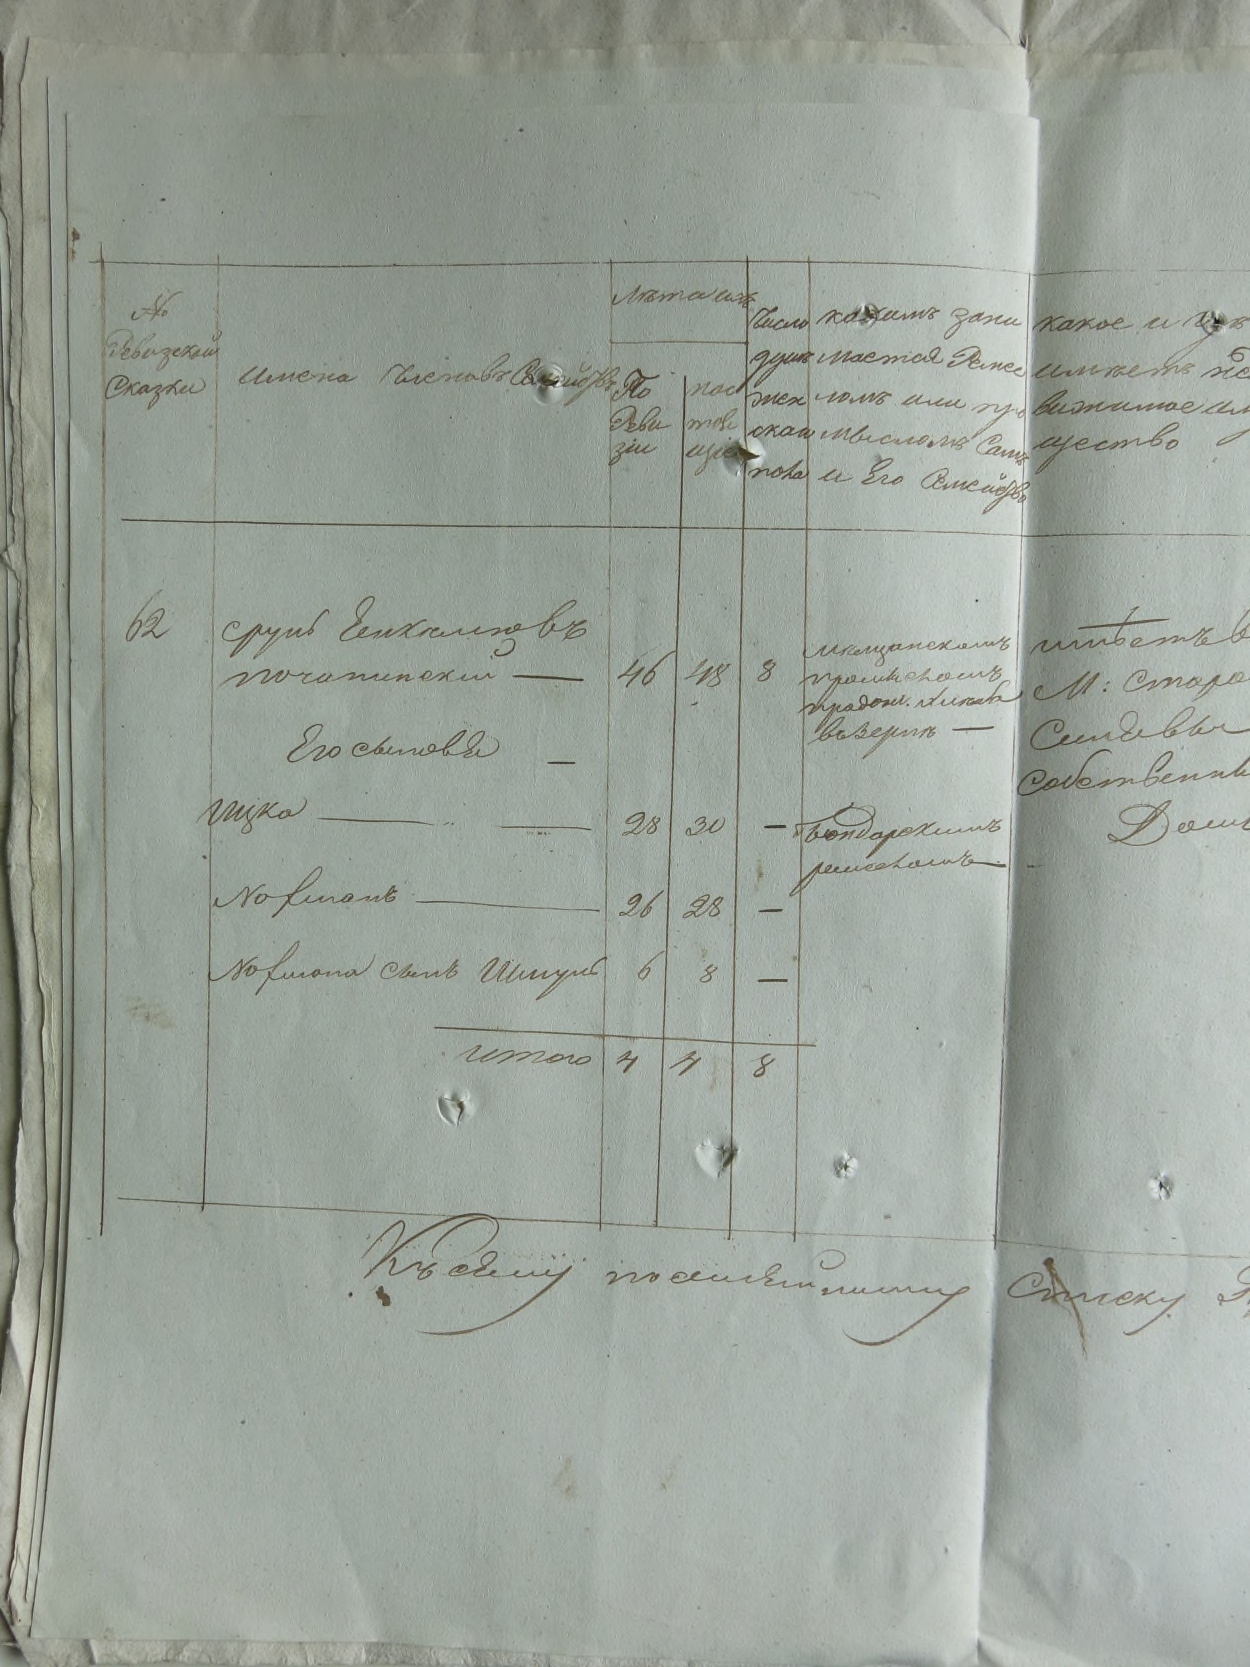 №
Ревизской
Сказки
Имена Членовъ Семействъ
Лѣта ихъ
По
Реви
зіи
нас
тоя
щіе
Число
душъ
жен
скаго
пола
какимъ зани
мается Реме
сломъ или про
мысломъ Самъ
и Его Семейство
какое и гдѣ
имѣетъ не
вижимое им
ущество
62
Срулъ
почапинский — 46 48 8
мѣщанскимъ
промысломъ
хлѣба
въ Зернѣ —
имѣетъ в
М: Старо
Собственны
Домъ
Его сыновья —
Ицко — 28 30 —
Бондарскимъ
ремесломъ —
Нофманъ — 26 28 —
Нофмана сынъ Шмуль 6 8 —
Итого 4 4 8
Къ сему посемейному Списку